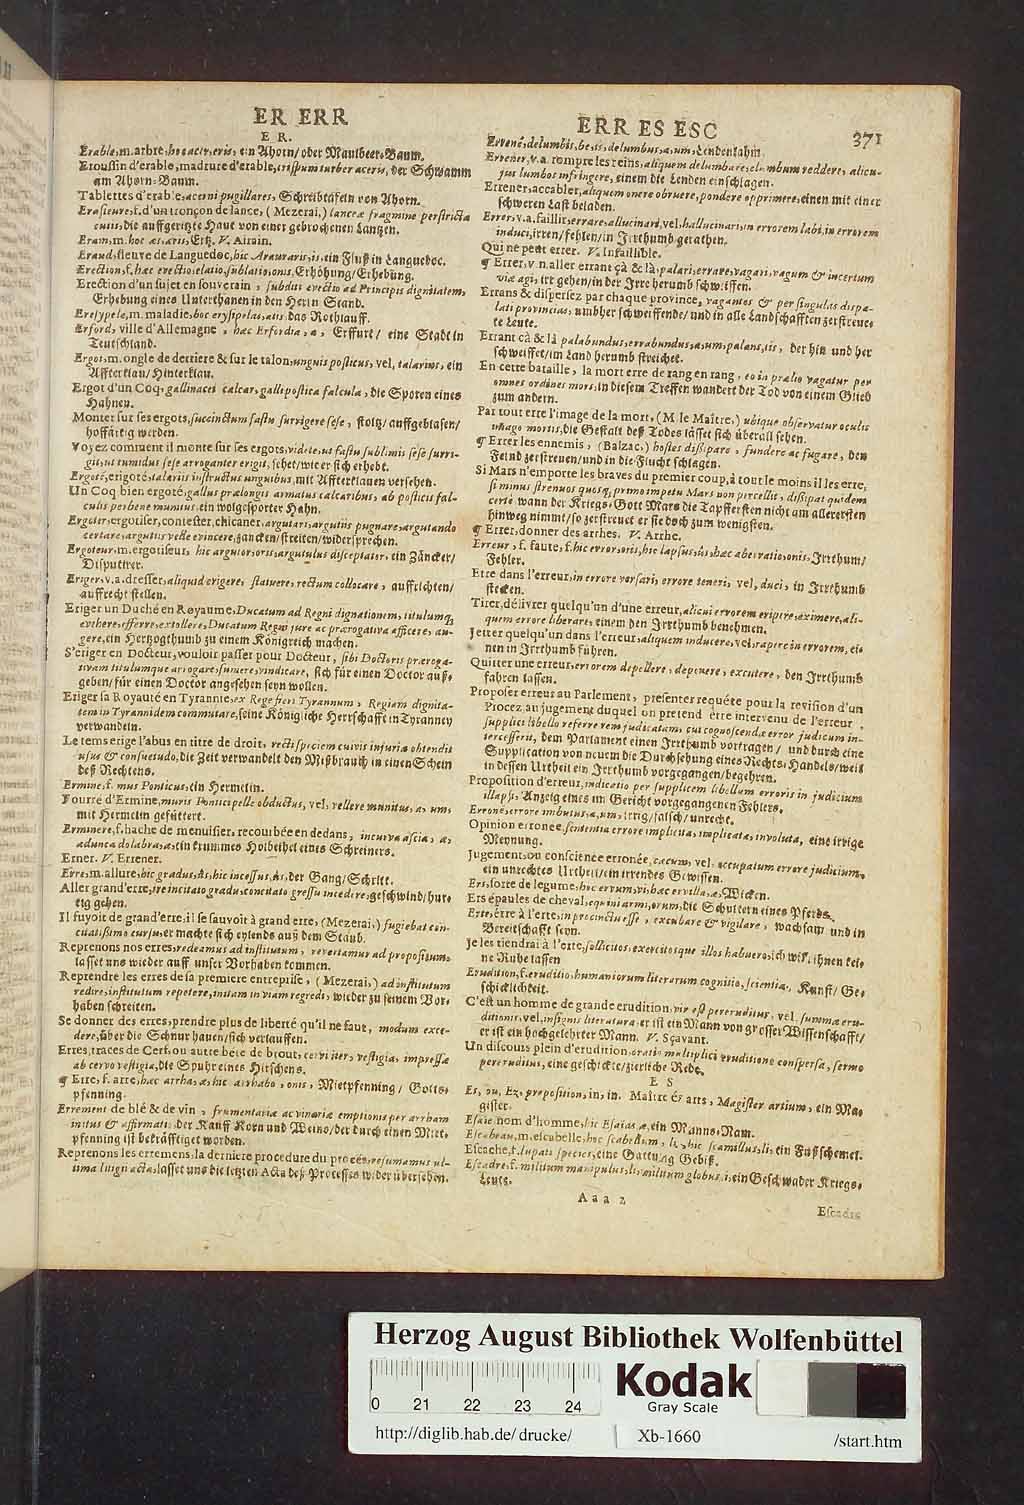 ER ERR
E R.
Erable, m. arbre, hoc acer, eris, ein Ahorn/ oder Maulbeer-Baum.
Broussin d'erable, madrure d'erable, crispum tuber aceris, der Schwamm
am Ahorn-Baum.
Tablettes d'erable, acerni pugillares, Schreibtafeln von Ahorn.
Erasieure, f. d'un tronçon de lance, (Mezerai,) lanceæ fragmine perstricta
cutis, die auffgeritzte Haut von einer gebrochenen Lantzen.
Eram, m. hoc æs, æris, Ertz. V. Airain.
Eraud, fleuve de Languedoc, hic Arauraris, is, ein Fluß in Languedoc.
Erection, f. hæc erectio, elatio, sublatio, onis, Erhöhung/ Erhebung.
Erection d'un sujet en souverain, subditi evectio ad Principis dignitatem,
Erhebung eines Unterthanen in den Herrn Stand.
Eresypele, m. maladie, hoc erysipelas, atis, das Rothlauff.
Erford, ville d'Allemagne, hæc Erfordia, æ, Erffurt/ eine Stadt in
Teutschland.
Ergot, m. ongle de derriere & sur le talon, unguis posticus, vel, talarius, ein
Affterklau/ Hinterklau.
Ergot d'un Coq, gallinacei calcar, galli postica falcula, die Sporen eines
Hahnen.
Monter sur ses ergots, succinctum fastu surrigere sese, stoltz/ auffgeblasen/
hoffärtig werden.
Voyez comment il monte sur ses ergots, videte, ut fastu sublimis sese surri-
git, ut tumidus sese arroganter erigit, sehet/ wie er sich erhebt.
Ergoté, erigoté, talariis instructus unguibus, mit Affterklauen versehen.
Un Coq bien ergoté, gallus prælongis armatus calcaribus, ab posticis fal-
culis perbene munitus, ein wolgesporter Hahn.
Ergoter, ergotiser, contester, chicaner, argutari, argutiis pugnare, argutando
certare, argutus velle evincere, zancken/ streiten/ widersprechen.
Ergoteur, m. ergotiseur, hic argutor, oris, argutulus disceptator, ein Zäncker/
Disputirer.
Eriger, v. a. dresser, aliquid erigere, statuere, rectum collocare, auffrichten/
auffrecht stellen.
Eriger un Duché en Royaume, Ducatum ad Regni dignationem, titulumq́;
evehere, efferre, extollere, Ducatum Regni jure ac prærogativa afficere, au-
gere, ein Hertzogthumb zu einem Königreich machen.
S'eriger en Docteur, vouloir passer pour Docteur, sibi Doctoris præroga-
tivam titulumque arrogare, sumere, vindicare, sich für einen Doctor auß-
geben/ für einen Doctor angesehen seyn wollen.
Eriger sa Royauté en Tyrannie, ex Rege fieri Tyrannum, Regiam dignita-
tem in Tyrannidem commutare, seine Königliche Herrschafft in Tyranney
verwandeln.
Le tems erige l'abus en titre de droit, recti speciem cuivis injuriæ obtendit
usus & consuetudo, die Zeit verwandelt den Mißbrauch in einen Schein
deß Rechtens.
Ermine, f. mus Ponticus, ein Hermelin.
Fourré d'Ermine, muris Pontici pelle obductus, vel, vellere munitus, a, um,
mit Hermelin gefüttert.
Erminere, f. hache de menuisier, recourbée en dedans, incurva ascia, æ,
adunca dolabra, æ, ein krummes Holbeihel eines Schreiners.
Erner. V. Errener.
Erre, m. allure, hic gradus, ûs, hic incessus, ûs, der Gang/ Schritt.
Aller grand'erre, ire incitato gradu, concitato gressu incedere, geschwind/ hur-
tig gehen.
Il fuyoit de grand'erre, il se sauvoit à grand erre, (Mezerai,) fugiebat con-
citatissimo cursu, er machte sich eylends auß dem Staub.
Reprenons nos erres, redeamus ad institutum, revertamur ad propositum,
lasset uns wieder auff unser Vorhaben kommen.
Reprendre les erres de sa premiere entreprise, (Mezerai,) ad institutum
redire, institutum repetere, initam in viam regredi, wieder zu seinem Vor-
haben schreiten.
Se donner des erres, prendre plus de liberté qu'il ne faut, modum exce-
dere, über die Schnur hauen/ sich verlauffen.
Erres, traces de Cerf, ou autre béte de brout, cervi iter, vestigia, impressæ
ab cervo vestigia, die Spuhr eines Hirschens.
¶ Erre, f. arre, hæc arrha, æ, hic arrhabo, onis, Mietpfenning/ Gotts-
pfenning.
Errement de blé & de vin, frumentariæ ac vinariæ emptionis per arrham
initus & affirmatio, der Kauff Korn und Weins/ der durch einen Miet-
pfenning ist bekräfftiget worden.
Reprenons les erremens, la derniere procedure du procés, resumamus ul-
tima litium acta, lasset uns die letzten Acta deß Processes wider übersehen.
ERR ES ESC
371
Errené, delumbis, be, is, delumbus, a, um, Lendenlahm.
Errener, v. a. rompre les reins, aliquem delumbare, elumbum reddere, alicu-
jus lumbos infringere, einem die Lenden einschlagen.
Errener, accabler, aliquem onere obruere, pondere opprimere, einen mit einer
schweren Last beladen.
Errer, v. a. faillir, errare, allucinari, vel, hallucinari, in errorem labi, in errorem
induci, irren/ fehlen/ in Irrthumb gerathen.
Qui ne peut errer. V. Infaillible.
¶ Errer, v. n. aller errant çà & là, palari, errare, vagari, vagum & incertum
viæ agi, irr gehen/ in der Irre herumb schweiffen.
Errans & dispersez par chaque province, vagantes & per singulas dispa-
lati provincias, umbher schweiffende/ und in alle Landschafften zerstreue-
te Leute.
Errant çà & là, palabundus, errabundus, a, um, palans, tis, der hin und her
schweiffet/ im Land herumb streichet.
En cette bataille, la mort erre de rang en rang, eo in prælio vagatur per
omnes ordines mors, in diesem Treffen wandert der Tod von einem Glied
zum andern.
Par tout erre l'image de la mort, (M. le Maître,) ubique observatur oculis
imago mortis, die Gestalt deß Todes lässet sich überall sehen.
¶ Errer les ennemis, (Balzac,) hostes dissipare, fundere ac fugare, den
Feind zerstreuen/ und in die Flucht schlagen.
Si Mars n'emporte les braves du premier coup, à tout le moins il les erre,
si minus strenuos quosq́; primo impetu Mars non percellit, dissipat quidem
certè, wann der Kriegs-Gott Mars die Tapffersten nicht am allerersten
hinweg nimmt/ so zerstreuet er sie doch zum wenigsten.
¶ Errer, donner des arrhes. V. Arrhe.
Erreur, f. faute, f. hic error, oris, hic lapsus, ûs, hæc aberratio, onis, Irrthum/
Fehler.
Etre dans l'erreur, in errore versari, errore teneri, vel, duci, in Irrthumb
stecken.
Tirer, délivrer quelqu'un d'une erreur, alicui errorem eripere, eximere, ali-
quem errore liberare, einem den Irrthumb benehmen.
Jetter quelqu'un dans l'erreur, aliquem inducere, vel, rapere in errorem, ei-
nen in Irrthumb führen.
Quitter une erreur, errorem depellere, deponere, excutere, den Irrthumb
fahren lassen.
Proposer erreur au Parlement, presenter requéte pour la revision d'un
Procez, au jugement duquel on pretend étre intervenu de l'erreur,
supplici libello referre rem judicatam, cui cognoscendæ error judicum in-
tercesserit, dem Parlament einen Irrthumb vortragen/ und durch eine
Supplication von neuem die Durchsehung eines Rechts-Handels/ weil
in dessen Urtheil ein Irrthumb vorgegangen/ begehren.
Proposition d'erreur, indicatio per supplicem libellum erroris in judicium
illapsi, Anzeig eines im Gericht vorgegangenen Fehlers.
Erroné, errore imbutus, a, um, irrig/ falsch/ unrecht.
Opinion erronée, sententia errore implicita, implicata, involuta, eine irrige
Meynung.
Jugement, ou conscience erronée, cæcum, vel, occupatum errore judicium,
ein unrechtes Urtheil/ ein irrendes Gewissen.
Ers, sorte de legume, hoc ervum, vi, hæc ervilla, æ, Wicken.
Ers épaules de cheval, equini armi, orum, die Schultern eines Pferds.
Erte, étre à l'erte, in procinctu esse, excubare & vigilare, wachsam und in
Bereitschafft seyn.
Je les tiendrai à l'erte, sollicitos, exercitosque illos habuero, ich will ihnen kei-
ne Ruhe lassen.
Erudition, f. eruditio, humaniorum literarum cognitio, scientia, Kunst/ Ge-
schicklichkeit.
C'est un homme de grande erudition, vir est pereruditus, vel, summæ eru-
ditionis, vel, insignis literatura, er ist ein Mann von grosser Wissenschafft/
er ist ein hochgelehrter Mann. V. Sçavant.
Un discours plein d'erudition, oratio multiplici eruditione conspersa, sermo
pereruditus, eine geschickte/ zierliche Rede.
E S
Es, ou, Ez, preposition, in, in. Maître és arts, Magister artium, ein Ma-
gister.
Esaie, nom d'homme, hic Esaias, æ, ein Manns-Nam.
Escabeau, m. escabelle, hoc scabellum, li, hic scamillus, li, ein Fußschemel.
Escache, f. lupati species, eine Gattung Gebiß.
Escadre, f. militum manipulus, li, militum globus, i, ein Geschwader Kriegs-
Leute.
Aaa 2
Escadre
Herzog August Bibliothek Wolfenbüttel
0 21 22 23 24
Kodak
Gray Scale
http://diglib.hab.de/drucke/
Xb-1660
/start.htm